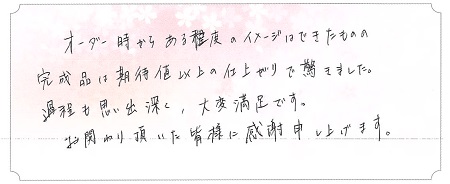 オーダー時からある程度のイメージはできたものの
完成品は期待値以上の仕上がりで驚きました。
過程も思い出深く、大変満足です。
お関わり頂いた皆様に感謝申し上げます。